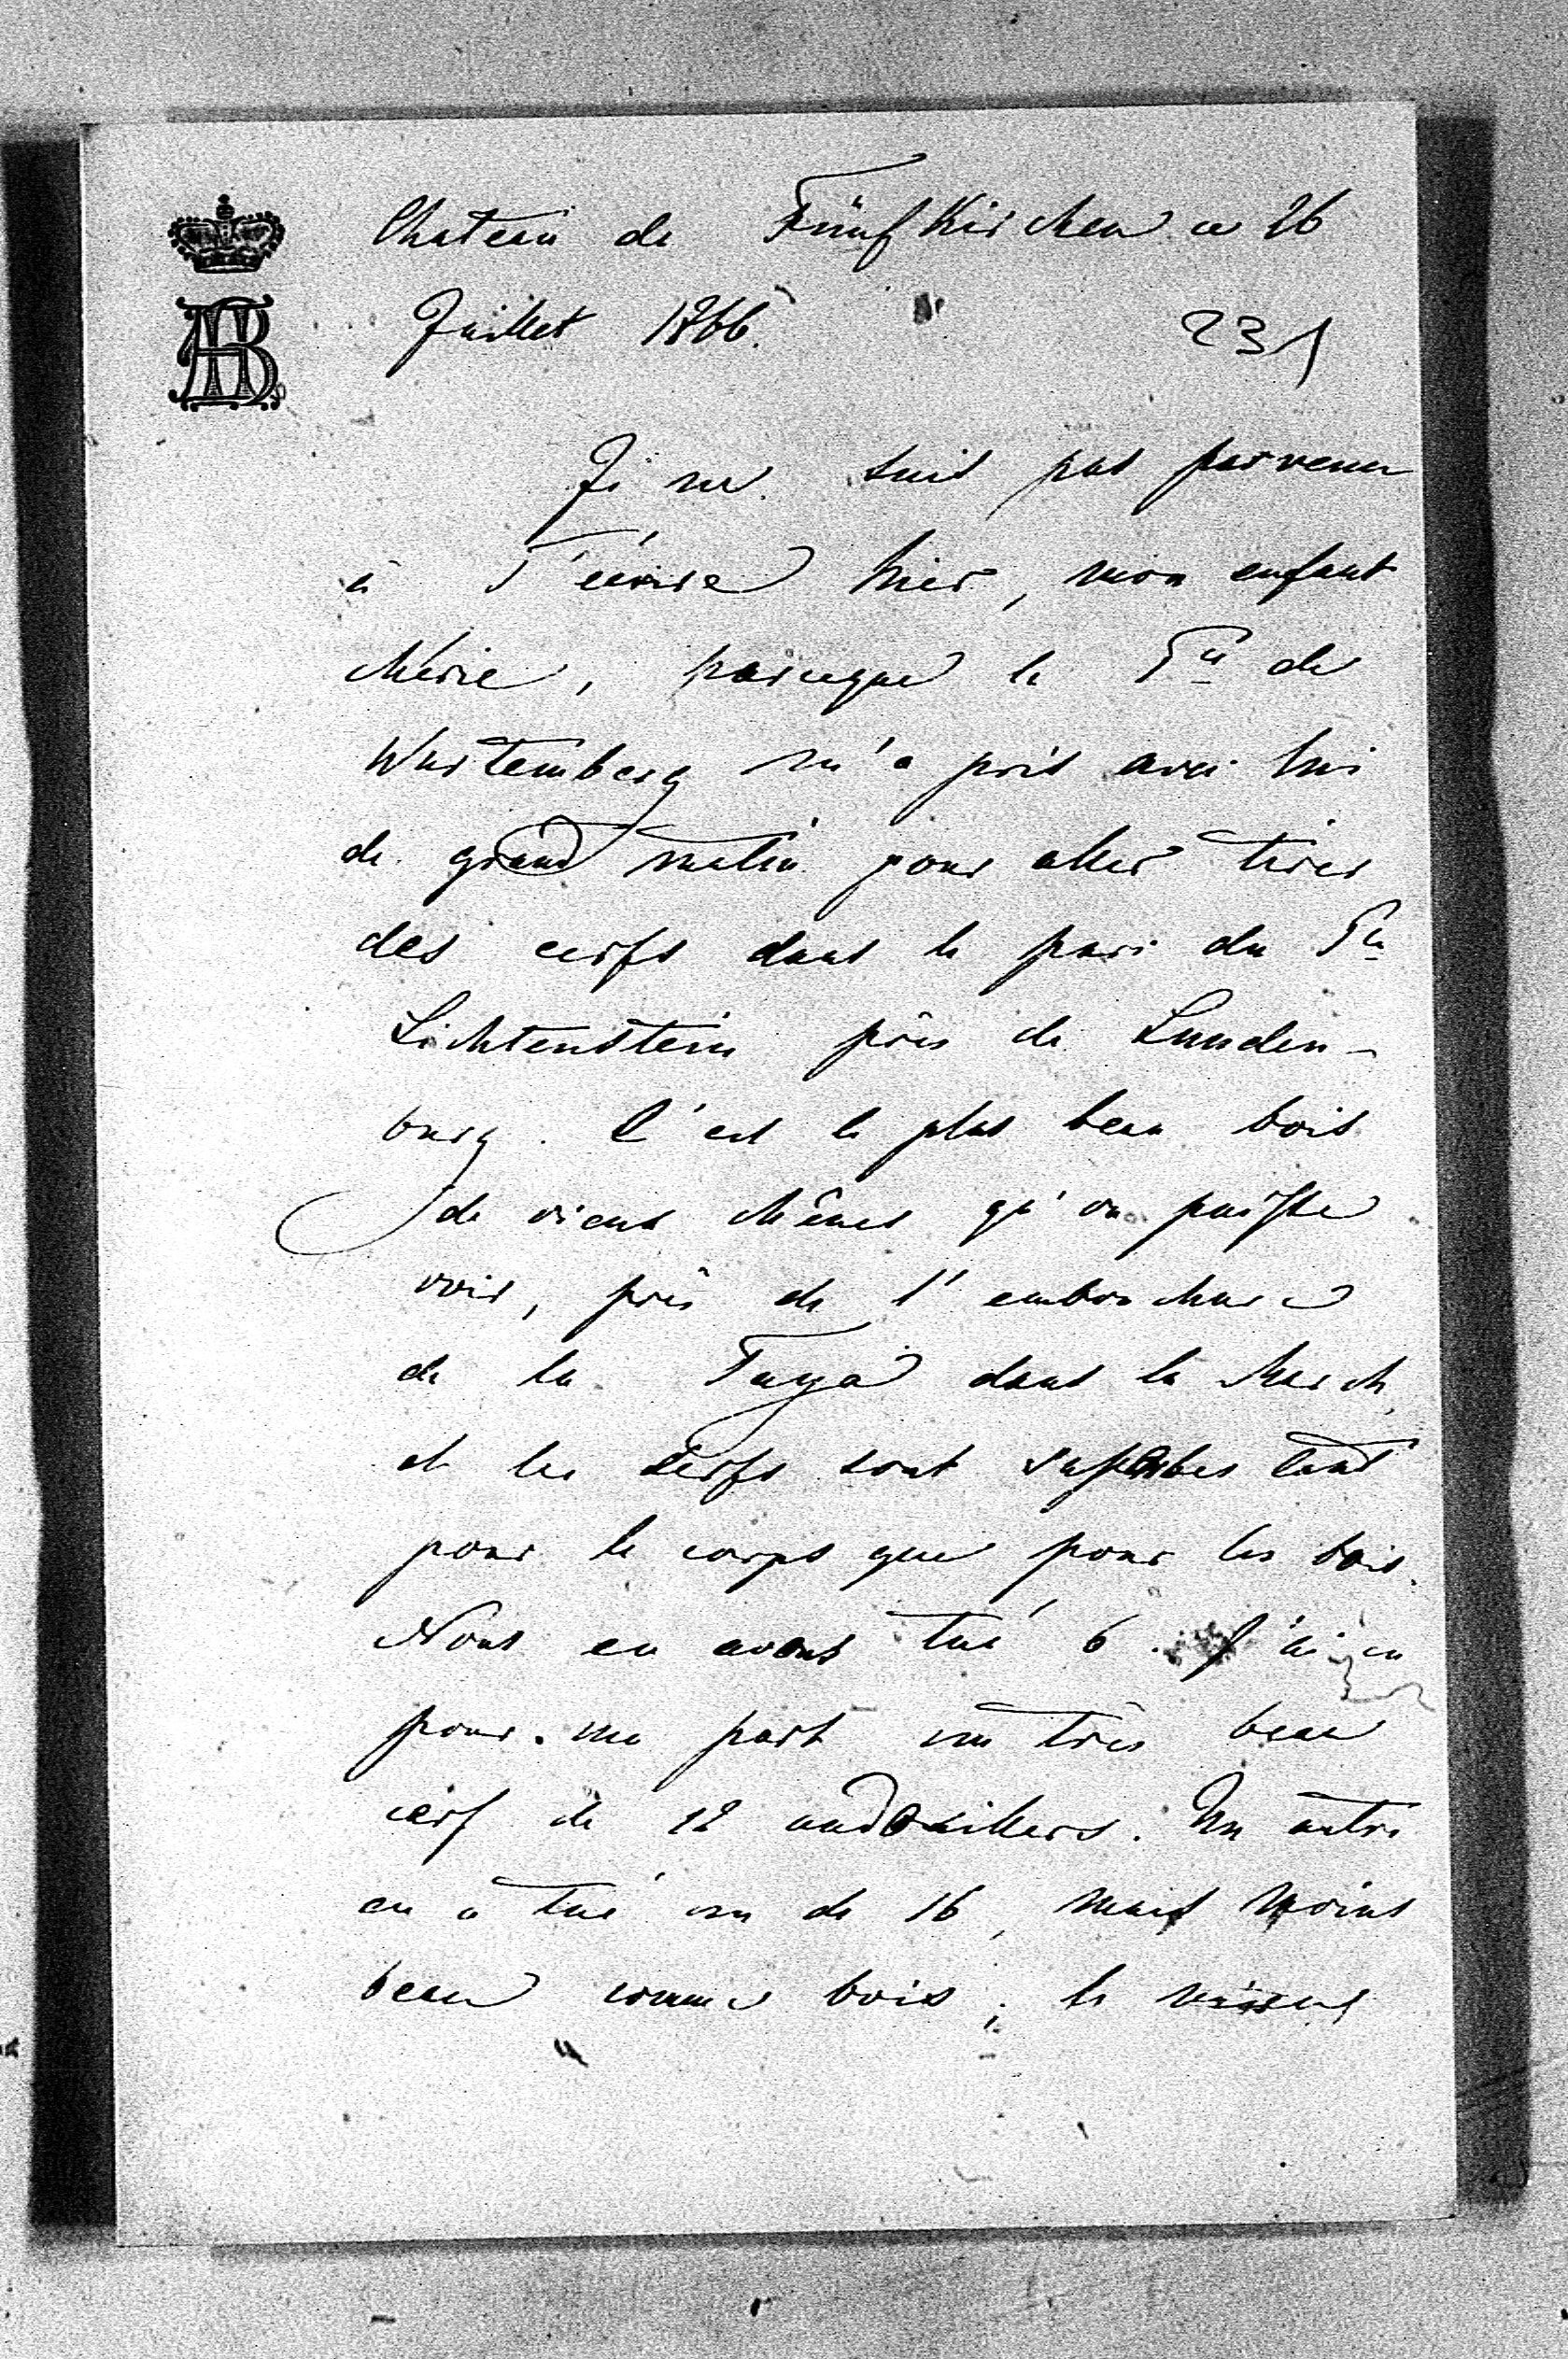 Chateau de Fünfkirchen ce 26
Juillet 1866.
231
Je ne suis pas parvenu
à T'écrire hier, mon enfant
chérie, parceque le Pce de
Wurtemberg m'a pris avec lui
de grand matin pour aller tirer
des cerfs dans le parc du Pce
Lichtenstein près de Lunden-
burg. C'est le plus beau bois
de vieux chênes qu'on puisse
voir, près de l'embouchure
de la Taya dans la March,
et les cerfs sont superbes tant
pour le corps que pour les bois.
Nous en avons tué 6. J'ai eu
pour ma part un très beau
cerf de 12 andouillers. Un autre
en a tué un de 16, mais moins
beau comme bois; le